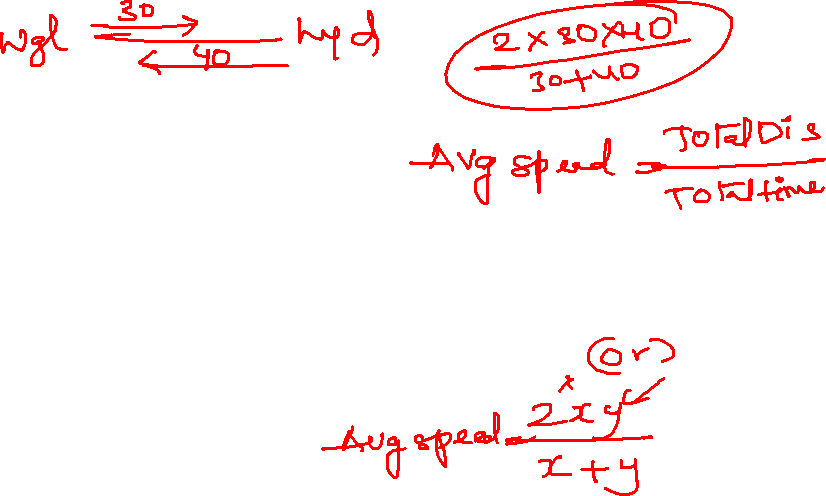 30
wgl hyd
40
2 x 30 x 40
30+40
Avg speed = Total Dis
Total time
(or)
x
Avg speed = 2xy
x + y